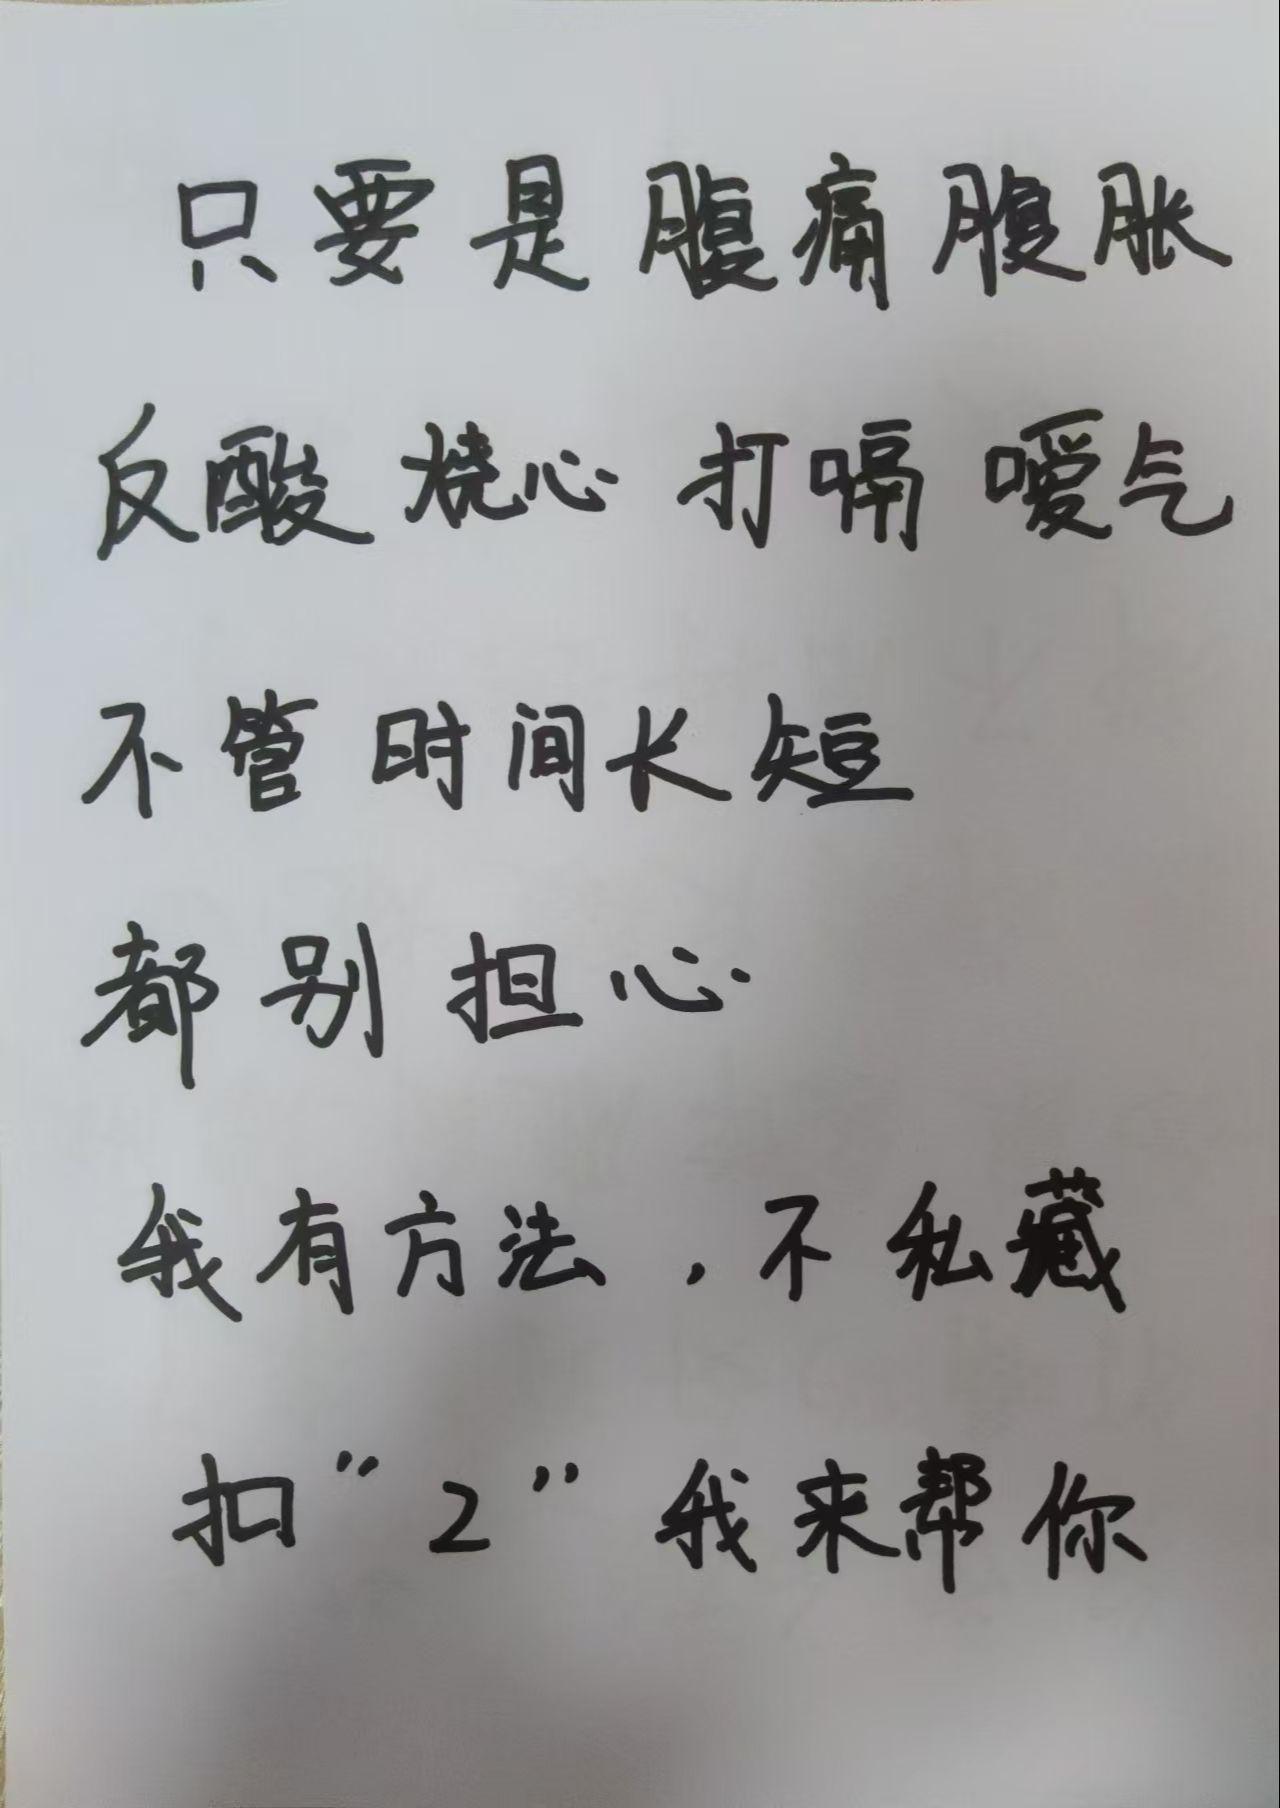 只要是腹痛腹胀
反酸 烧心 打嗝 嗳气
不管时间长短
都别担心
我有方法，不私藏
扣“2”我来帮你